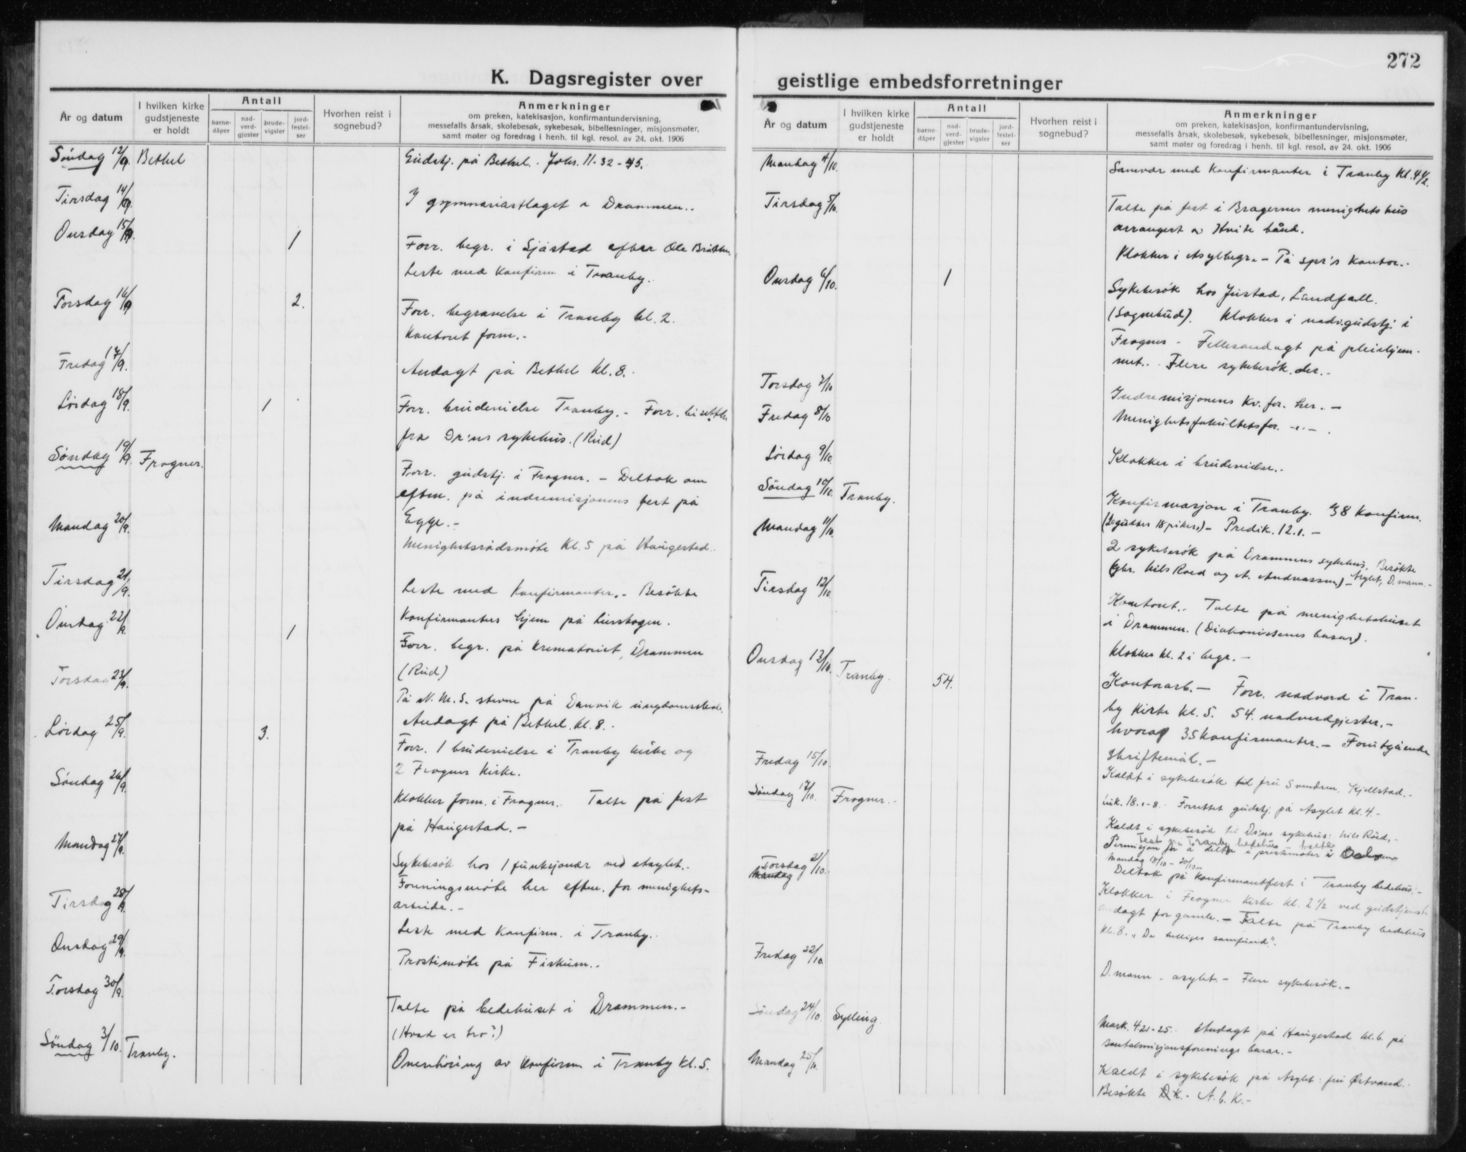 K. Dagsregister over
År og datum
I hvilken kirke gudstjeneste er holdt
Antall
barne-dåper
nad-verd-gjester
brude-vigsler
jord-festel-ser
Hvorhen reist i sognebud?
Anmerkninger
om preken, katekisasjon, konfirmantundervisning,
messefalls årsak, skolebesøk, sykebesøk, bibellesninger, misjonsmøter,
samt møter og foredrag i henh. til kgl. resol. av 24. okt. 1906
Søndag 12/9 Bethel Gudstj. på Bethel. Johs. 11. 32-45.
Tirsdag 14/9 I gymnasiastlaget i Drammen..
Onsdag 15/9 1 Forr. begr. i Sjåstad efter Ole
Leste med konfirm. i Tranby.
Torsdag 16/9 2. Forr. begravelse i Tranby kl. 2.
Kontoret form..
Fredag 17/9. Andagt på Bethel kl. 8.
Lørdag 18/9. 1 Forr. brudevielse Tranby. - Forr.
fra Dr:ns sykehus. (Rud)
Søndag 19/9. Frogner. Forr. gudstj. i Frogner. - Deltok om
eftm. på indremisjonens fest på
Egge. -
Mandag 20/9. Menighetsrådsmøte kl. 5 på Haugestad.
Tirsdag 21/9. Leste med konfirmanter. - Besøkte
Onsdag 22/9. 1 konfirmanters hjem på
Forr. begr. på krematoriet, Drammen
(Rud)
Torsdag 23/9. På N.M.S. stevne på Danvik
Andagt på Bethel kl. 8.
Lørdag 25/9. 3. Forr. 1 brudevielse i Tranby kirke og
2 Frogner kirke.
Søndag 26/9. Klokker form. i Frogner. Talte på fest
på Haugestad. -
Mandag 27/9. Sykebesøk hos 1 funksjonær ved Asylet.
Foreningsmøte her eftm. for menighets-
arbeide. -
Tirsdag 28/9. Leste med konfirm. i Tranby.
Onsdag 29/9. Prostimøte på Fiskum..
Torsdag 30/9. Talte på bedehuset i Drammen. -
(Hvad er tro?)
Søndag 3/10. Tranby. Overhøring av konfirm. i Tranby kl. 5.
272
geistlige embedsforretninger
År og datum
I hvilken kirke gudstjeneste er holdt
Antall
barne-dåper
nad-verd-gjester
brude-vigsler
jord-festel-ser
Hvorhen reist i sognebud?
Anmerkninger
om preken, katekisasjon, konfirmantundervisning,
messefalls årsak, skolebesøk, sykebesøk, bibellesninger, misjonsmøter,
samt møter og foredrag i henh. til kgl. resol. av 24. okt. 1906
Mandag 4/10. Samvær med konfirmanter i Tranby kl. 4 1/2.
Tirsdag 5/10. Talte på fest i Bragernes menighetshus
arrangert av Hvite bånd.
Klokker i Asylbegr. - På spr's kontor..
Onsdag 6/10. 1 Sykebesøk hos Justad, Landfall.
(Sognebud). Klokker i nadv.gudstj. i
Frogner - Fellesandagt på pleiehjem-
met.. Flere sykebesøk der. -
Torsdag 7/10 Indremisjonens kv. for. her. -
Fredag 8/10 Menighetsfakultetsfor. -"- .
Lørdag 9/10 Klokker i brudevielse..
Søndag 10/10. Tranby. Konfirmasjon i Tranby. 38 konfirm.
Predik. 12.1. -
Mandag 11/10. 2 sykebesøk på Drammens sykehus. Besøkte
Nils Roed og A. Andreassen) - Asylet, D.mann. -
Tirsdag 12/10 Kontoret.. Talte på menighetshuset
i Drammen. (Diakonissenes basar).
Klokker kl. 2 i begr. -
Onsdag 13/10. Tranby. 54. Kontorarb. - Forr. nadverd i Tran-
by kirke kl. 5. 54 nadverdgjester. -
hvorav 35 konfirmanter. - Forutgående
skriftemål. -
Fredag 15/10. Kaldt i sykebesøk til fru Svendsen, Kjellstad. -
Søndag 17/10. Frogner. - Luk. 18. 1-8. Forrettet gudstj. på Asylet kl. 4. -
Kaldt i sykebesøk til Dr:ns sykehus: Nils Roed, -
Permisjon for å delta i prestemøter i Oslo
Mandag 18/10 - 20/10.
Torsdag 21/10. Deltok på konfirmantfest i Tranby bedehus. -
Klokker i Frogner kirke kl. 2 1/2 ved gudstjeneste
andagt for gamle. - Talte på Tranby bedehus
kl. 8. "De helliges samfund".
Fredag 22/10. D.mann - asylet - Flere sykebesøk. -
Søndag 24/10. Sylling. Mark. 4 21-25. Andagt på Haugestad kl. 6 på
santalmisjonsforenings basar. -
Mandag 25/10. Kaldt i sykebesøk på Asylet: fru Østvand.
Besøkte D.K. - A.b.K. -